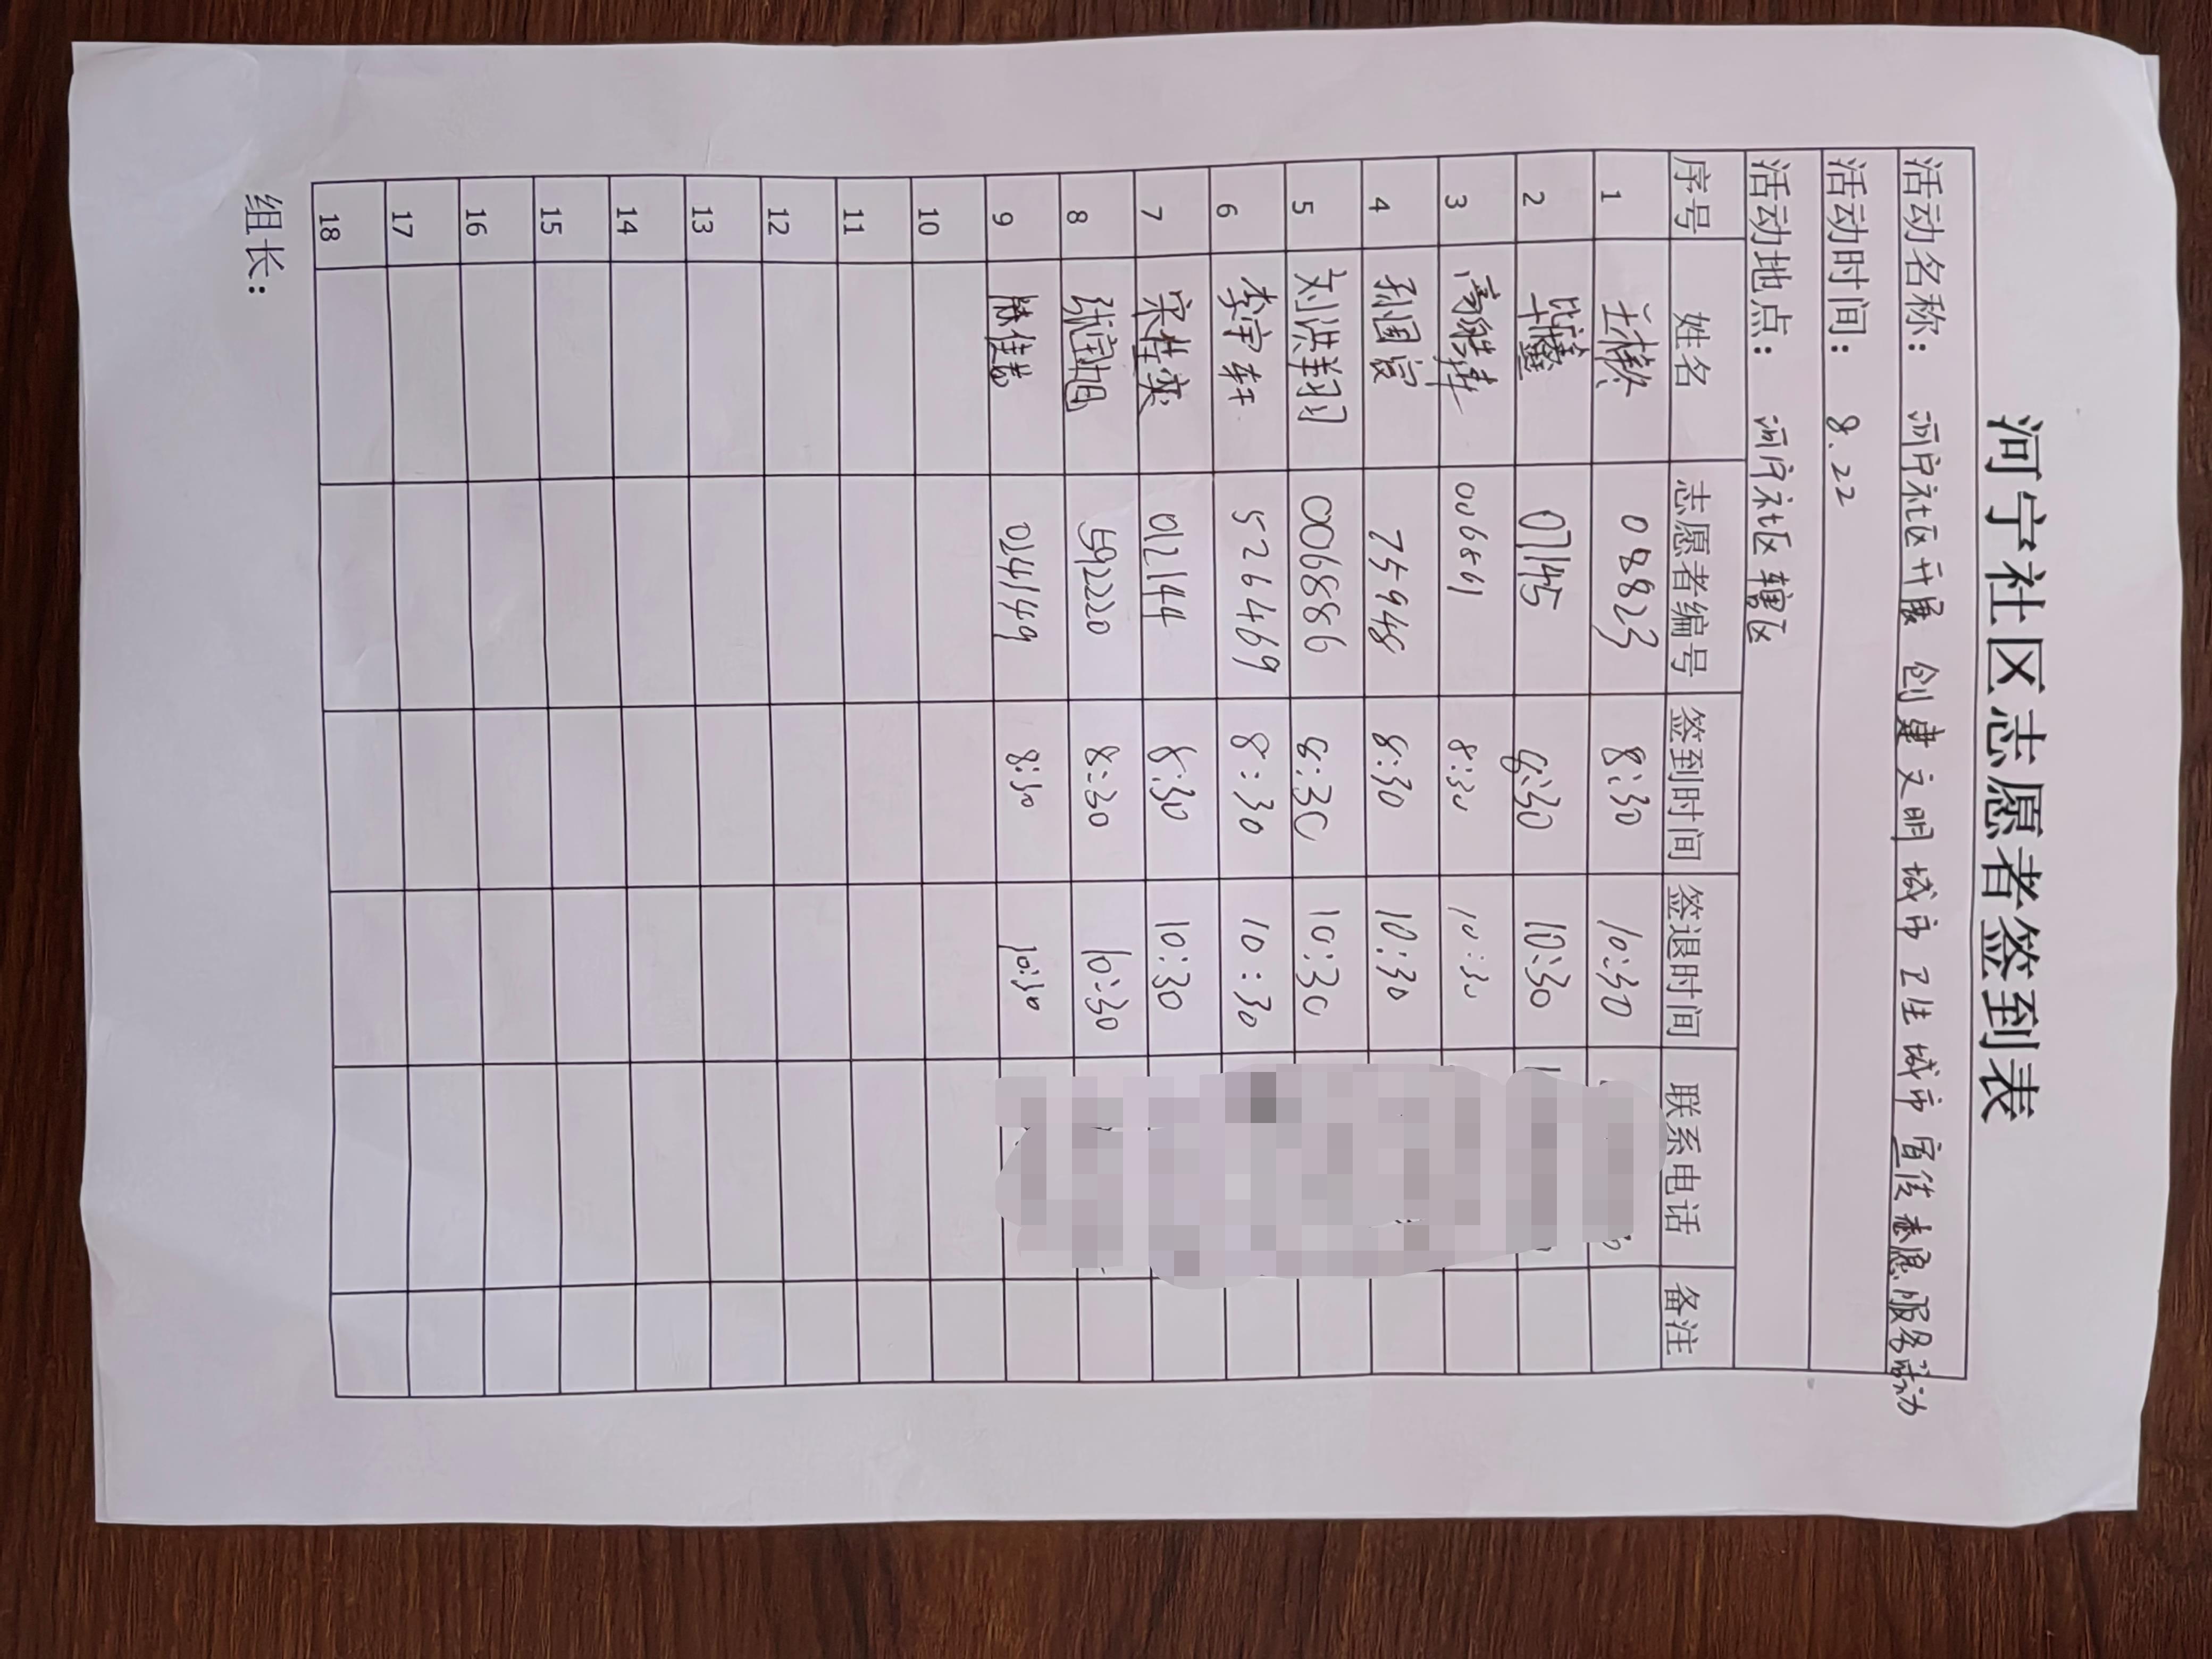 河宁社区志愿者签到表
活动名称： 河宁社区开展 创建文明城市 卫生城市 宣传志愿服务活动
活动时间： 8.22
活动地点： 河宁社区辖区
序号 姓名 志愿者编号 签到时间 签退时间 联系电话 备注
1 08823 8:30 10:30
2 07145 8:30 10:30
3 8:30 10:30
4 孙国宸 75948 8:30 10:30
5 刘洪翔 006886 8:30 10:30
6 李宇轩 526469 8:30 10:30
7 宋佳奕 012144 8:30 10:30
8 张闰旭 592220 8:30 10:30
9 024149 8:30 10:30
10
11
12
13
14
15
16
17
18
组长：